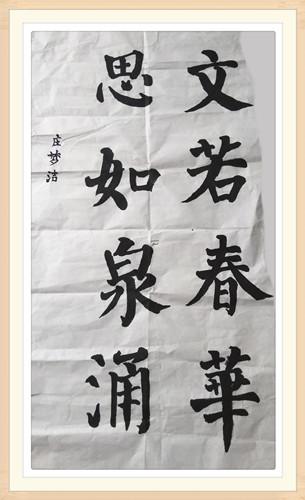 文若春華
思如泉涌
庄梦洁